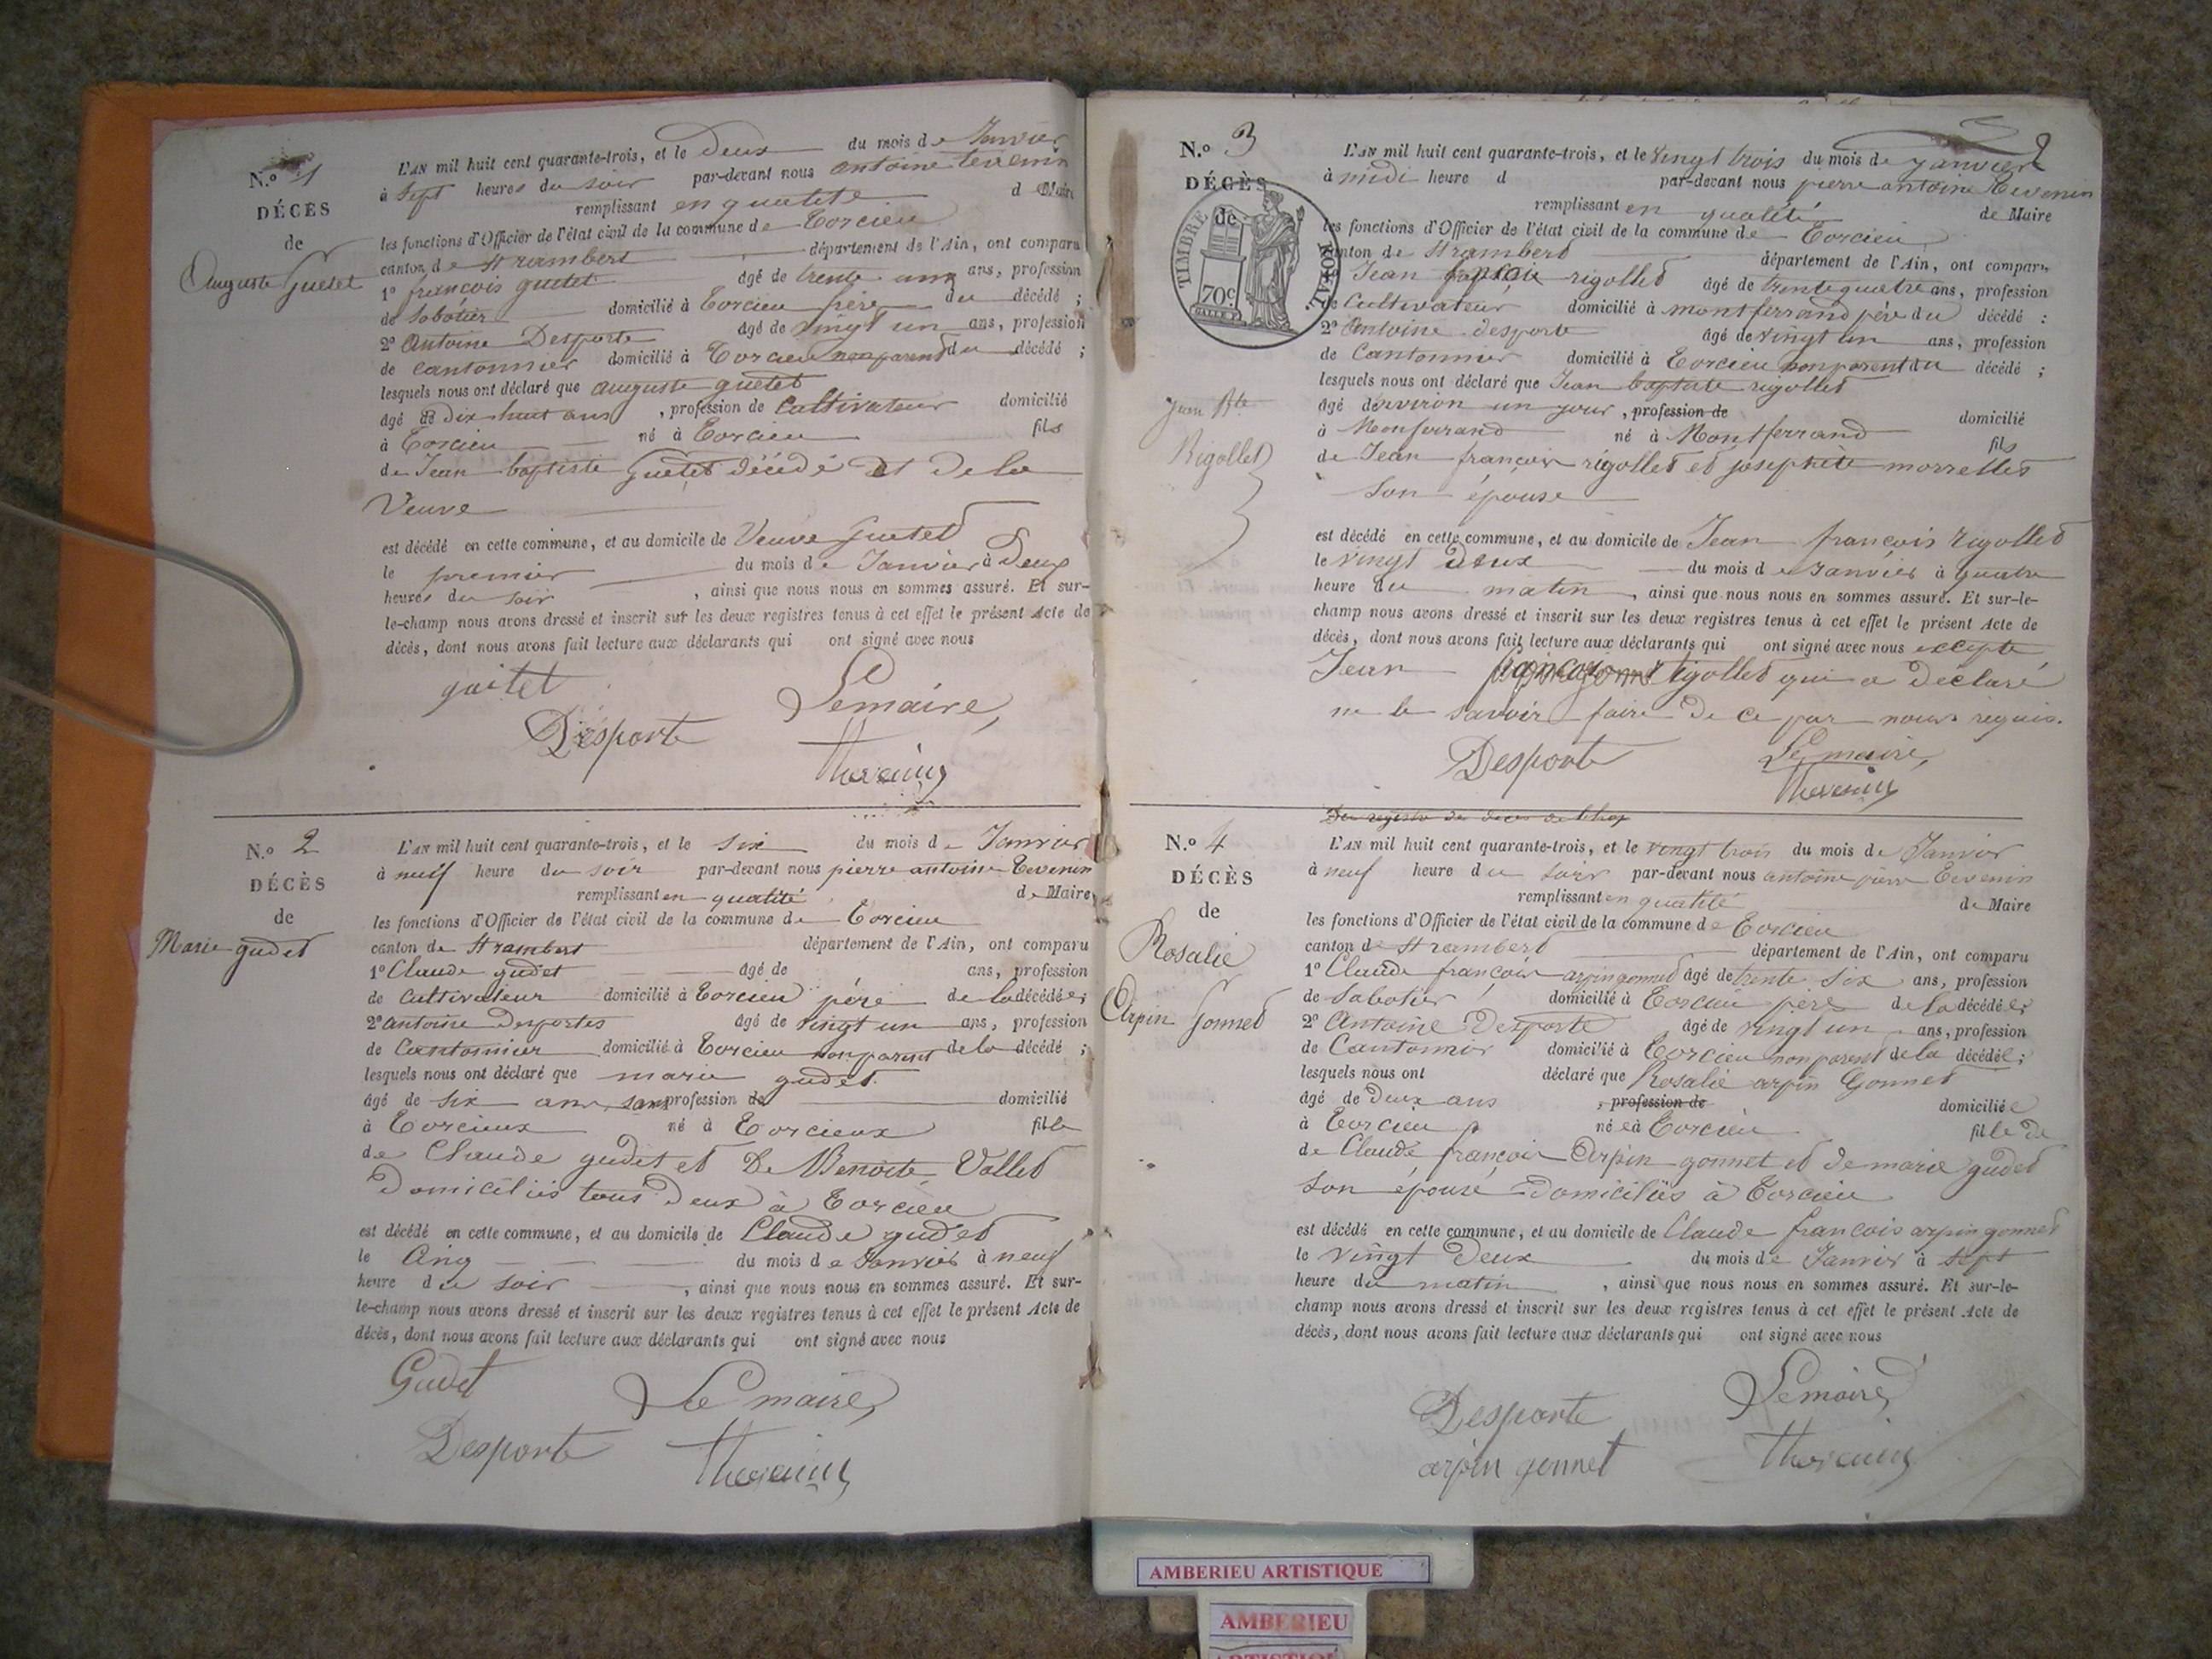 N.o 1
DÉCÈS
de
Auguste Guetet
L'AN mil huit cent quarante-trois, et le Deux du mois de Janvier
à Sept heures du soir par-devant nous antoine tevenin
remplissant en qualité d Maire
les fonctions d'Officier de l'état civil de la commune de Torcieu
canton de St rambert département de l'Ain, ont comparu
1o françois guetet âgé de trente ans, profession
de Sabotier domicilié à Torcieu frère du décédé ;
2o Antoine Desporte âgé de vingt un ans, profession
de cantonnier domicilié à Torcieu non parent du décédé ;
lesquels nous ont déclaré que auguste guetet
âgé de dix huit ans , profession de Cultivateur domicilié
à Torcieu né à Torcieu fils
de Jean baptiste Guetet décédé et de la
Veuve
est décédé en cette commune, et au domicile de Veuve Guetet
le premier du mois de Janvier à Deux
heures du soir , ainsi que nous nous en sommes assuré. Et sur-
le-champ nous avons dressé et inscrit sur les deux registres tenus à cet effet le présent Acte de
décès, dont nous avons fait lecture aux déclarants qui ont signé avec nous
guitet Le maire,
Desporte
Thevenin
N.o 2
DÉCÈS
de
Marie gudet
L'AN mil huit cent quarante-trois, et le Six du mois de Janvier
à neuf heure du soir par-devant nous pierre antoine Tevenin
remplissant en qualité de Maire
les fonctions d'Officier de l'état civil de la commune de Torcieu
canton de St rambert département de l'Ain, ont comparu
1o Claude gudet âgé de ans, profession
de Cultivateur domicilié à Torcieu père de la décédée ;
2o antoine Desportes âgé de vingt un ans, profession
de Cantonnier domicilié à Torcieu non parent de la décédé ;
lesquels nous ont déclaré que marie gudet
âgé de six ans, sans profession de domicilié
à Torcieux né à Torcieux fille
de Claude gudet et De Benoite Vallet
Domiciliés tous Deux à Torcieu
est décédé en cette commune, et au domicile de Claude gudet
le Cinq du mois de Janvier à neuf
heure du soir , ainsi que nous nous en sommes assuré. Et sur-
le-champ nous avons dressé et inscrit sur les deux registres tenus à cet effet le présent Acte de
décès, dont nous avons fait lecture aux déclarants qui ont signé avec nous
Gudet Le maire,
Desporte Thevenin
2
N.o 3
DÉCÈS
de
TIMBRE ROYAL
70c
Jean Bte
Rigollet
L'AN mil huit cent quarante-trois, et le vingt trois du mois de janvier
à midi heure d par-devant nous pierre antoine Tevenin
remplissant en qualité de Maire
les fonctions d'Officier de l'état civil de la commune de Torcieu
canton de St rambert département de l'Ain, ont comparu
Jean rigollet âgé de trente quatre ans, profession
de Cultivateur domicilié à montferrand père du décédé :
2o Antoine desporte âgé de vingt un ans, profession
de Cantonnier domicilié à Torcieu non parent du décédé ;
lesquels nous ont déclaré que Jean baptiste rigollet
âgé d'environ un jour , profession de domicilié
à Monferrand né à Montferrand fils
de Jean françois rigollet et josephete morrellet
son épouse
est décédé en cette commune, et au domicile de Jean françois rigollet
le vingt deux du mois de Janvier à quatre
heure du matin , ainsi que nous nous en sommes assuré. Et sur-le-
champ nous avons dressé et inscrit sur les deux registres tenus à cet effet le présent Acte de
décès, dont nous avons fait lecture aux déclarants qui ont signé avec nous excepté
Jean rigollet qui a déclaré
ne le savoir faire de ce par nous requis.
Desporte Le maire,
Thevenin
N.o 4
DÉCÈS
de
Rosalie
Arpin Gonnet
L'AN mil huit cent quarante-trois, et le vingt trois du mois de Janvier
à neuf heure du soir par-devant nous antoine pierre Tevenin
remplissant en qualité de Maire
les fonctions d'Officier de l'état civil de la commune de Torcieu
canton de St rambert département de l'Ain, ont comparu
1o Claude françois arpin gonnet âgé de trente six ans, profession
de Sabotier domicilié à Torcieu père de la décédée ;
2o Antoine Desporte âgé de vingt un ans, profession
de Cantonnier domicilié à Torcieu non parent de la décédée ;
lesquels nous ont déclaré que Rosalie arpin Gonnet
âgé de Deux ans , profession de domiciliée
à Torcieu née à Torcieu fille de
de Claude françois Arpin gonnet et de marie gudet
Son épouse Domiciliés à Torcieu
est décédé en cette commune, et au domicile de Claude françois arpin gonnet
le vingt Deux du mois de Janvier à sept
heure du matin , ainsi que nous nous en sommes assuré. Et sur-le-
champ nous avons dressé et inscrit sur les deux registres tenus à cet effet le présent Acte de
décès, dont nous avons fait lecture aux déclarants qui ont signé avec nous
Desporte Le maire,
arpin gonnet Thevenin
AMBERIEU ARTISTIQUE
AMBERIEU
ARTISTIQUE